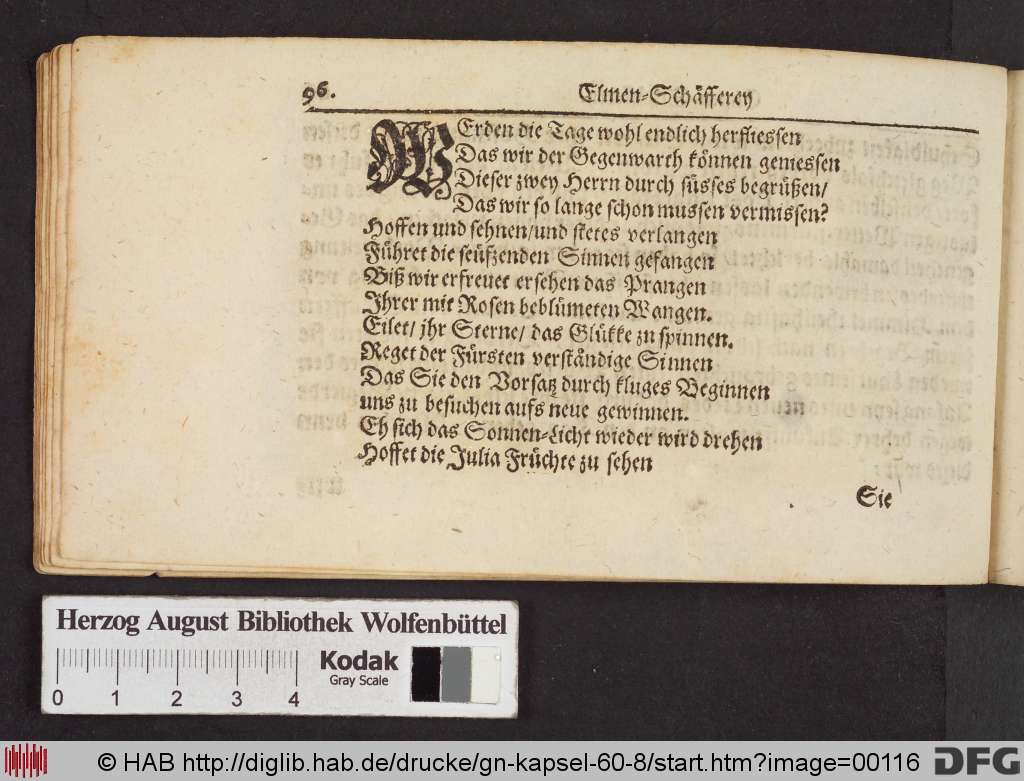 96. Elmen-Schäfferey
WErden die Tage wohl endlich herfliessen
Das wir der Gegenwarth können geniessen
Dieser zwey Herrn durch süsses begrüßen/
Das wir so lange schon mussen vermissen?
Hoffen und sehnen/und stetes verlangen
Führet die seüfzenden Sinnen gefangen
Biß wir erfreuet ersehen das Prangen
Ihrer mit Rosen beblümeten Wangen.
Eilet/ jhr Sterne/ das Glükke zu spinnen.
Reget der Fürsten verständige Sinnen
Das Sie den Vorsatz durch kluges Beginnen
uns zu besuchen aufs neue gewinnen.
Eh sich das Sonnen-Licht wieder wird drehen
Hoffet die Julia Früchte zu sehen
Sie
Herzog August Bibliothek Wolfenbüttel
Kodak
Gray Scale
0 1 2 3 4
© HAB http://diglib.hab.de/drucke/gn-kapsel-60-8/start.htm?image=00116 DFG